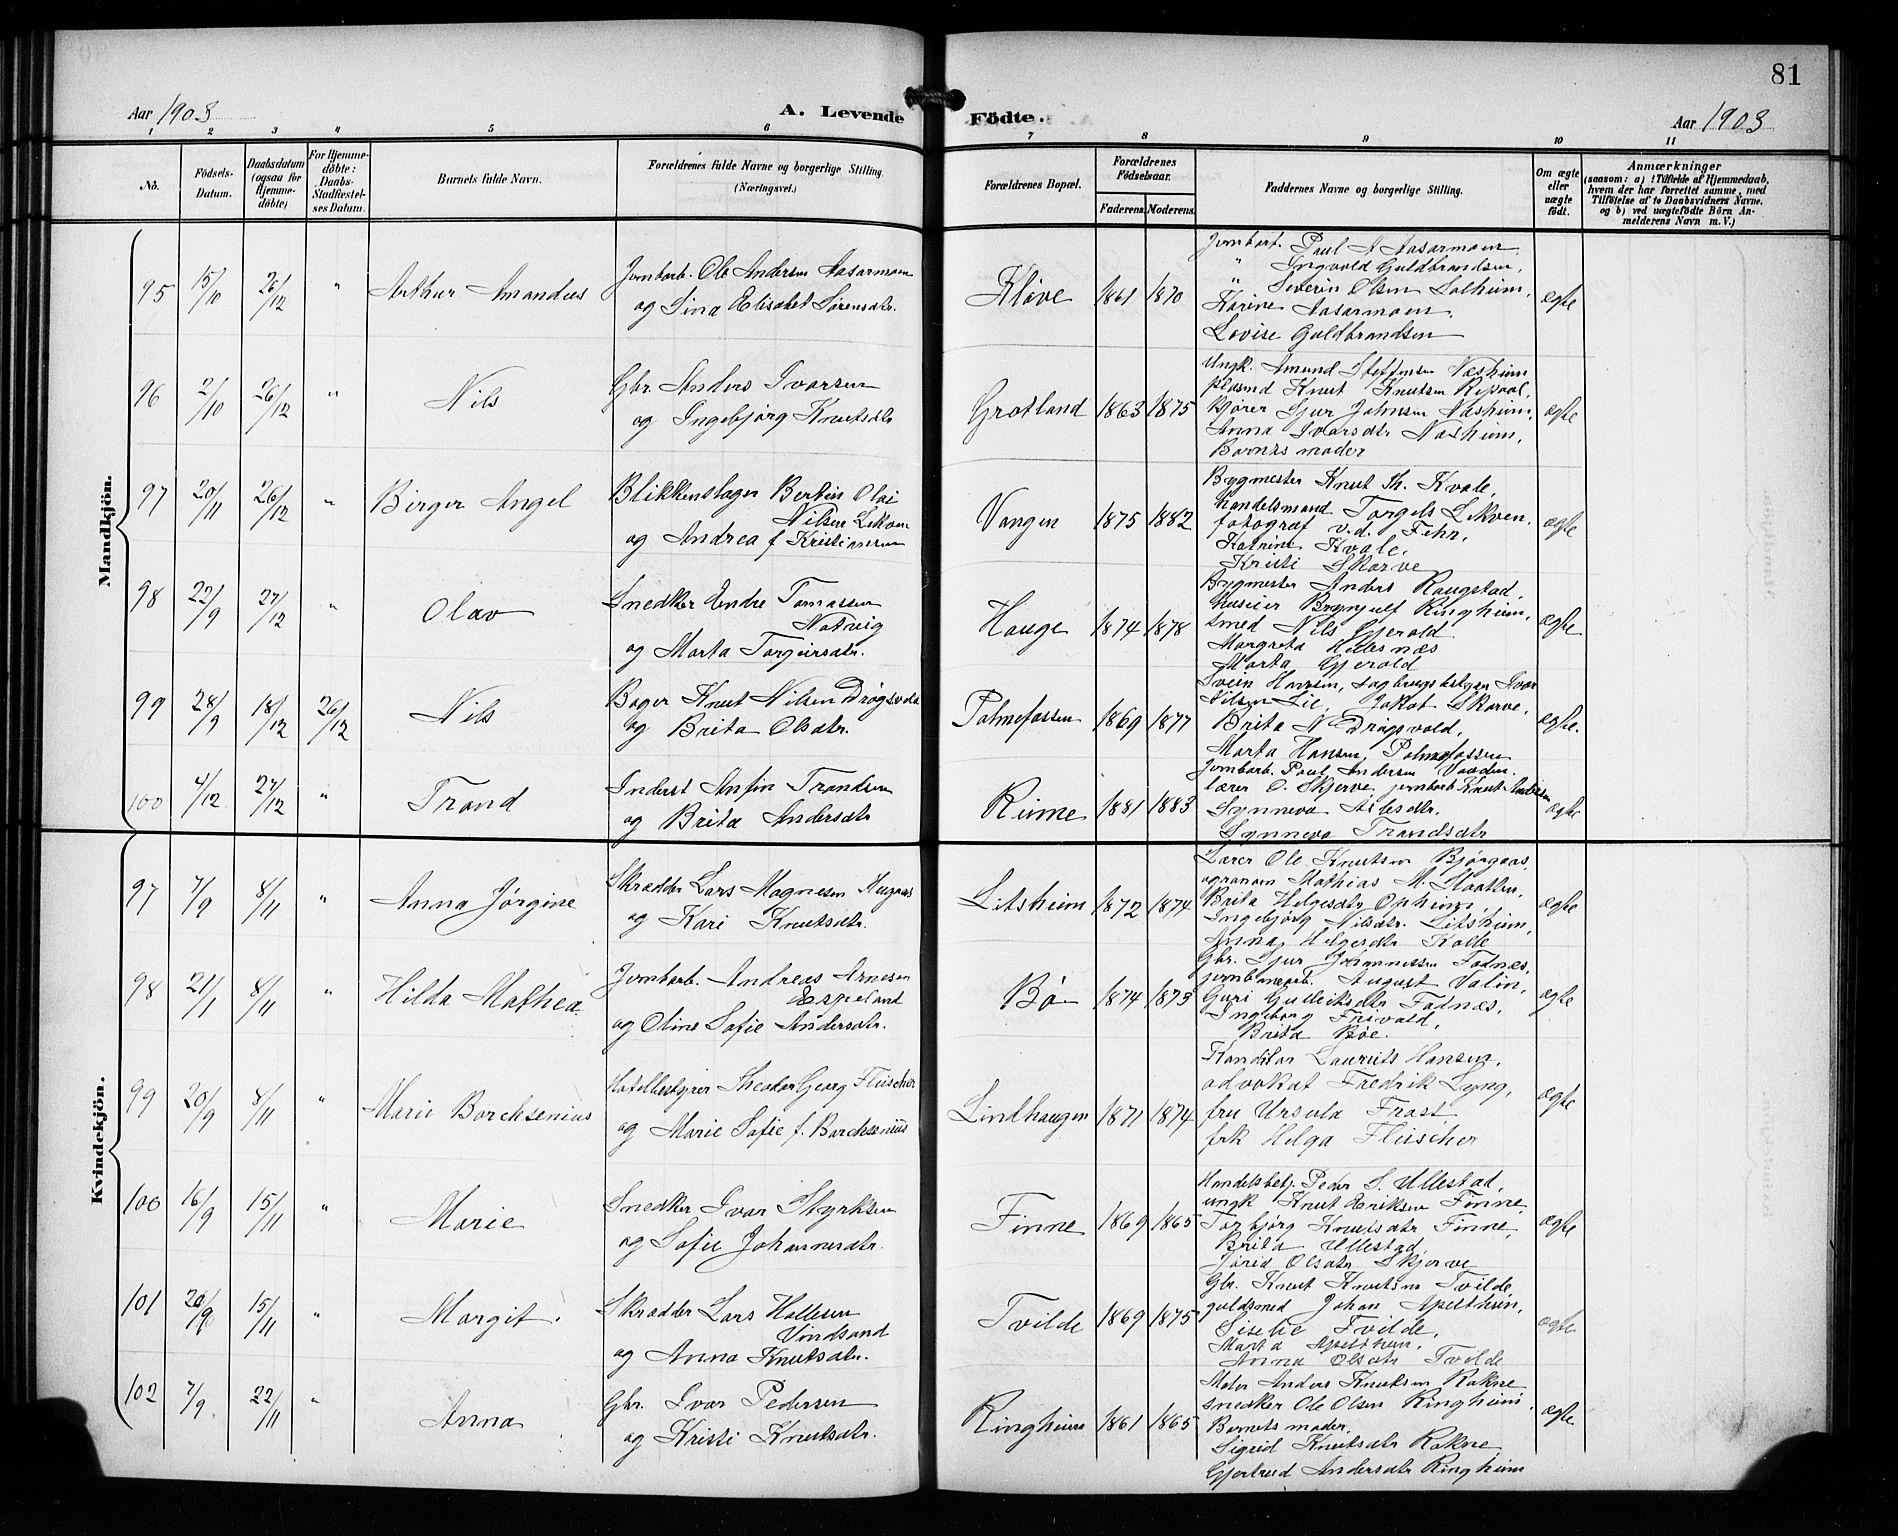 81
Aar 1903
A. Levende Födte.
Aar 1903
1 2 3 4 5 6 7 8 9 10 11
No.
Födsels-Datum.
Daabsdatum (ogsaa for Hjemme-döbte)
For Hjemme-döbte: Daabs-Stadfæstel-ses Datum.
Barnets fulde Navn.
Forældrenes fulde Navne og borgerlige Stilling. (Næringsvei.)
Forældrenes Bopæl.
Forældrenes Födselsaar.
Faderens. Moderens.
Faddernes Navne og borgerlige Stilling.
Om ægte eller uægte födt.
Anmærkninger
(saasom: a) i Tilfælde af Hjemmedaab,
hvem der har forrettet samme, med
Tilföielse af to Daabsvidners Navne.
og b) ved uægtefödte Börn An-
melderens Navn m. V.)
Mandkjön.
95 15/10 26/12 " Arthur Amandus
Jernbarb. Ole Andersen Aasarmoen
og Sina Elisabet Sørensdtr.
Kløve 1861 1870
Jernbarb. Paul A Aasarmoen
" Ingvald Guldbrandsen,
" Severin Olsen Solheim,
Karine Aasarmoen,
Lovise Guldbrandsen
ægte
96 2/10 26/12 " Nils
Gbr. Anders Ivarsen
og Ingebjørg Knutsdtr
Grotland 1863 1875
Ungk. Amund Næsheim
Knut Knutsen
Sjur Johnsen Næsheim,
Anna Ivarsdtr Næsheim,
Barnets moder
ægte
97 20/11 26/12 " Birger Angel
Blikkenslager Bertin Olai
Nilsen Lekven
og Andrea f. Kristiansen
Vangen 1875 1882
Bygmester Knut Th. Kvale,
handelsmand Torgels Lekven,
fotograf v.d. Fehr,
Katrine Kvale,
Kristi Skorve
ægte
98 22/9 27/12 " Olav
Snedker Endre Tomassen
Natvig
og Marta Torgeirsdtr.
Hauge 1874 1878
Bygmester Anders Raugstad,
Brynjulf Ringheim,
smed Nils Gjerald
Margreta Hellesnæs
Marta Gjerald
ægte
99 28/9 18/12 26/12 Nils
Bager Knut Nilsen Drøgsvold
og Brita Olsdtr.
Palmefossen 1869 1877
Svein Hansen, sagbrugsbestyrer Ivar
Nilsen Lie, Jakob Skorve,
Brita N. Drøgsvold,
Marta Hansen, Palmefossen
ægte.
100 4/12 27/12 " Trond
Inderst Anfin Trondsen
og Brita Andersdtr
Rinne 1881 1883
Jernbarb. Paul Andersen
lærer O. Skjerve, jernbarb Knut Andersen
Synneva
Synneva Trondsdtr
ægte
Kvindekjön.
97 7/9 8/11 " Anna Jørgine
Skrædder Lars Magnesen
og Kari Knutsdtr.
Litsheim 1872 1874
Lærer Ole Knutsen Bjørgaas,
agronom Mathias M.
Brita Helgesdtr Opheim,
Ingebjørg Nilsdtr. Litsheim,
Anna Helgesdtr
ægte
98 21/1 8/11 " Hilda Mathea
Jernbarb. Andreas Arnesen
Espeland
og Oline Sofie Andersdtr.
Bø 1874 1873
Gbr. Sjur Johannessen Fadnes,
jernbanearb. August Valin,
Guri Gulleiksdtr Fadnes,
Ingeborg Frivold,
Brita Bøe.
ægte
99 20/9 8/11 " Marie Borchsenius
Hotelbestyrer Theodor Georg Fleischer
og Marie Sofie f. Borchsenius
Lindhaugen 1871 1874
Konditor Laurits Hansen,
advokat Fredrik Lyng,
fru Ursula Frost
frk Helga Fleischer
ægte
100 16/9 15/11 " Marie
Snedker Ivar Styrksen
og Sofie Johannesdtr.
Finne 1869 1865
Handelsbetj. Peder S. Ullestad,
ungk Knut Eriksen Finne,
Torbjørg Knutsdtr Finne,
Brita Ullestad
Jørid Olsdtr Skjerve
ægte
101 20/9 15/11 " Margit.
Skrædder Lars Hallesen
Vindsand
og Anna Knutsdtr.
Tvilde 1869 1875
Gbr. Knut Knutsen Tvilde,
guldsmed Johan Apeltheim,
Siselie Tvilde,
Marta Apeltheim,
Anna Olsdtr Tvilde
ægte
102 7/9 22/11 " Anna
Gbr. Ivar Pedersen
og Kristi Knutsdtr.
Ringheim 1861 1865
Maler Anders Knutsen Rokne
snedker Ole Olsen Ringheim,
Barnets moder,
Sigrid Knutsdtr Rokne,
Gjertrud Andersdtr Ringheim
ægte